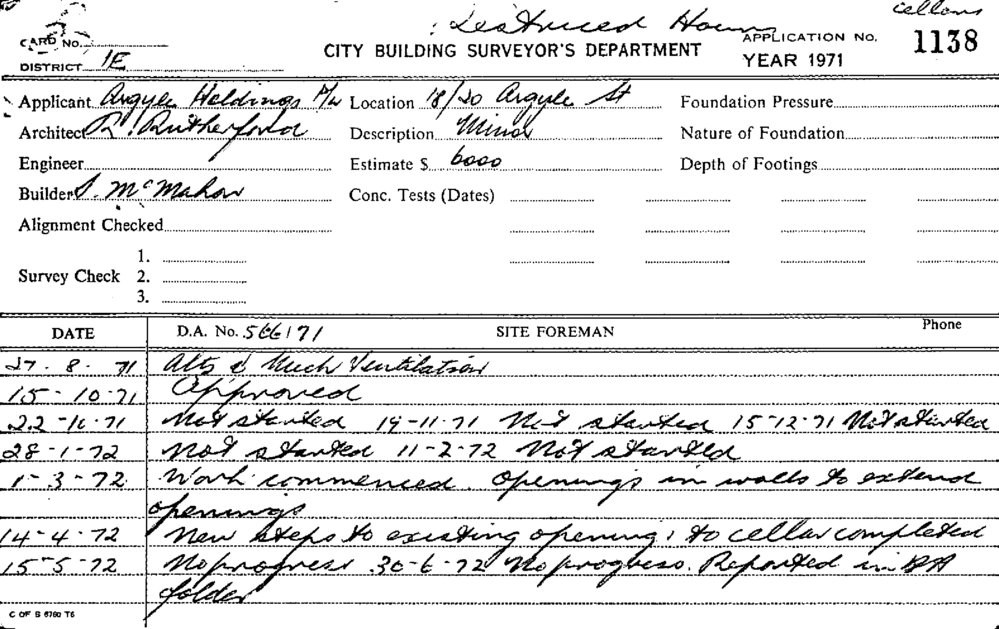 cellars
CARD NO. APPLICATION NO. 1138
CITY BUILDING SURVEYOR'S DEPARTMENT
DISTRICT 1E YEAR 1971
Applicant Argyle Holdings P/L Location 18/20 Argyle St Foundation Pressure
Architect R. Rutherford Description Minor Nature of Foundation
Engineer Estimate $ 6000 Depth of Footings
Builder S. McMahon Conc. Tests (Dates)
Alignment Checked
1.
Survey Check 2.
3.
DATE D.A. No. 566/71 SITE FOREMAN Phone
27.8.71 Alts & Mech Ventilation
15-10-71 Approved
22-10-71 Not started 19-11-71 Not started 15-12-71 Not started
28-1-72 Not started 11-2-72 Not started
1-3-72 Work commenced. Openings in walls to extend
openings
14-4-72 New steps to existing openings to cellar completed
15-5-72 No progress 30-6-72 No progress. Reported in BA
folder
C OF S 6760 T6